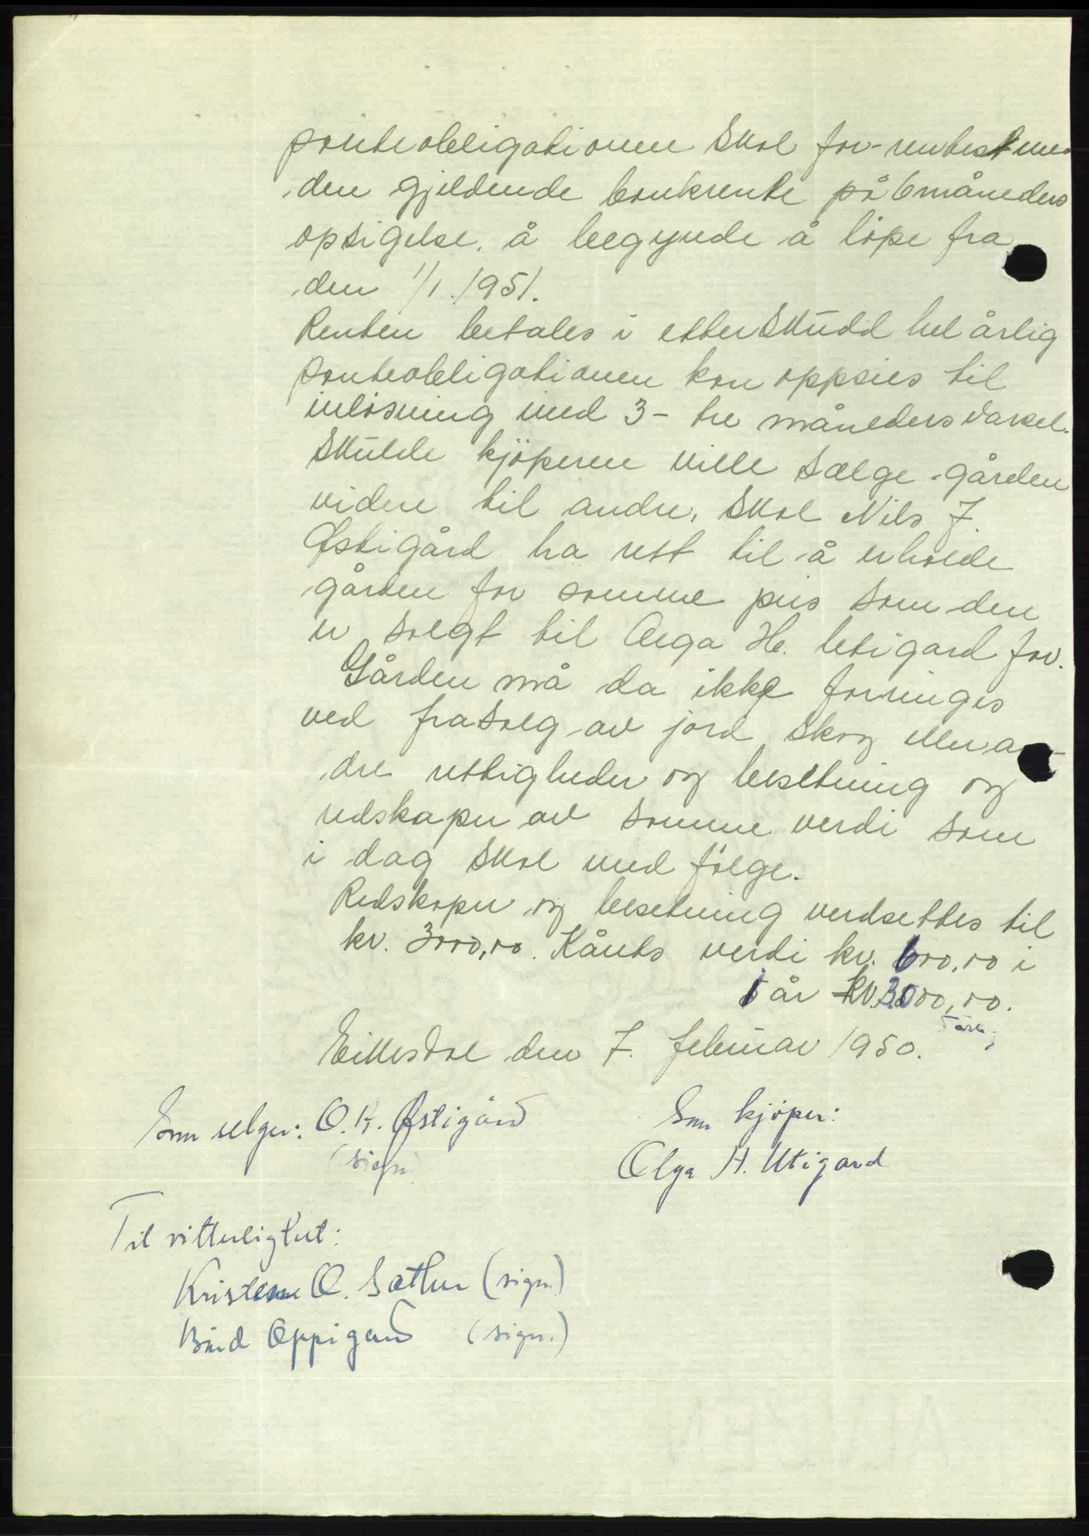 panteobligationene skal for-rentes med
den gjeldende bankrente på 6 måneders
opsigelse, å begynde å løpe fra
den 1/1 1951.
Renten betales i etterskudd hel årlig
panteobligationen kan oppsies til
inløsning med 3- tre måneders varsel.
Skulde kjøperen ville sælge gården
videre til andre, skal Nils J.
Østigård ha rett til å erholde
gården for samme pris som den
er solgt til Olga H. Utigard for.
Gården må da ikke forringes
ved frasalg av jord skog eller an-
dre rettigheder og besetning og
redskaper av samme verdi som
i dag skal med følge.
Redskaper og besetning verdsettes til
kr. 3000,00. Kårets verdi kr. 600,00 i
5 år kr. 3000,00.
Eikesdal den 7. februar 1950.
Som selger: O. K. Østigård
(sign)
Som kjøper:
Olga H. Utigard
Til vitterlighet:
Kristene O. Sæther (sign.)
Bård Oppigard (sign.)